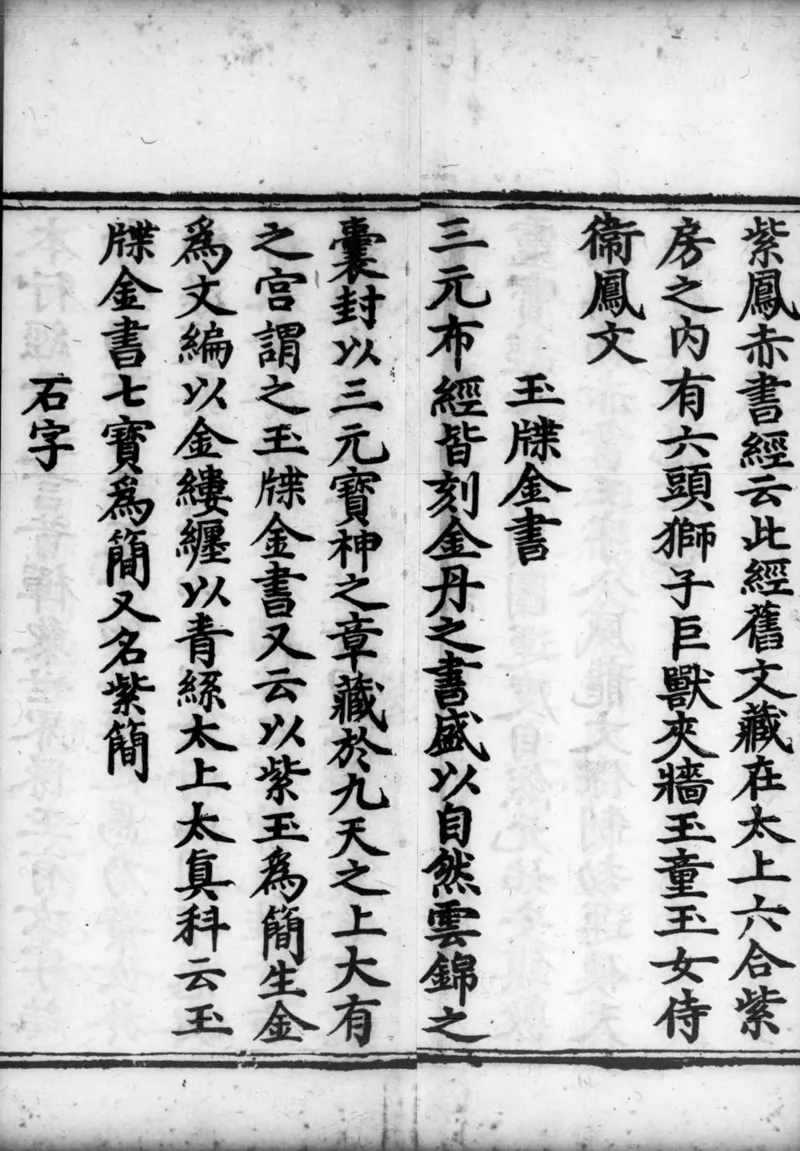 紫鳳赤書經云此經舊文藏在太上六合紫
房之内有六頭獅子巨獸夾牆玉童玉女侍
衞鳳文
玉牒金書
三元布經皆刻金丹之書盛以自然雲錦之
囊封以三元寶神之章藏於九天之上大有
之宫謂之玉牒金書又云以紫玉為簡生金
爲文編以金縷纏以青絲太上太眞科云玉
牒金書七寶爲簡又名紫簡
石字